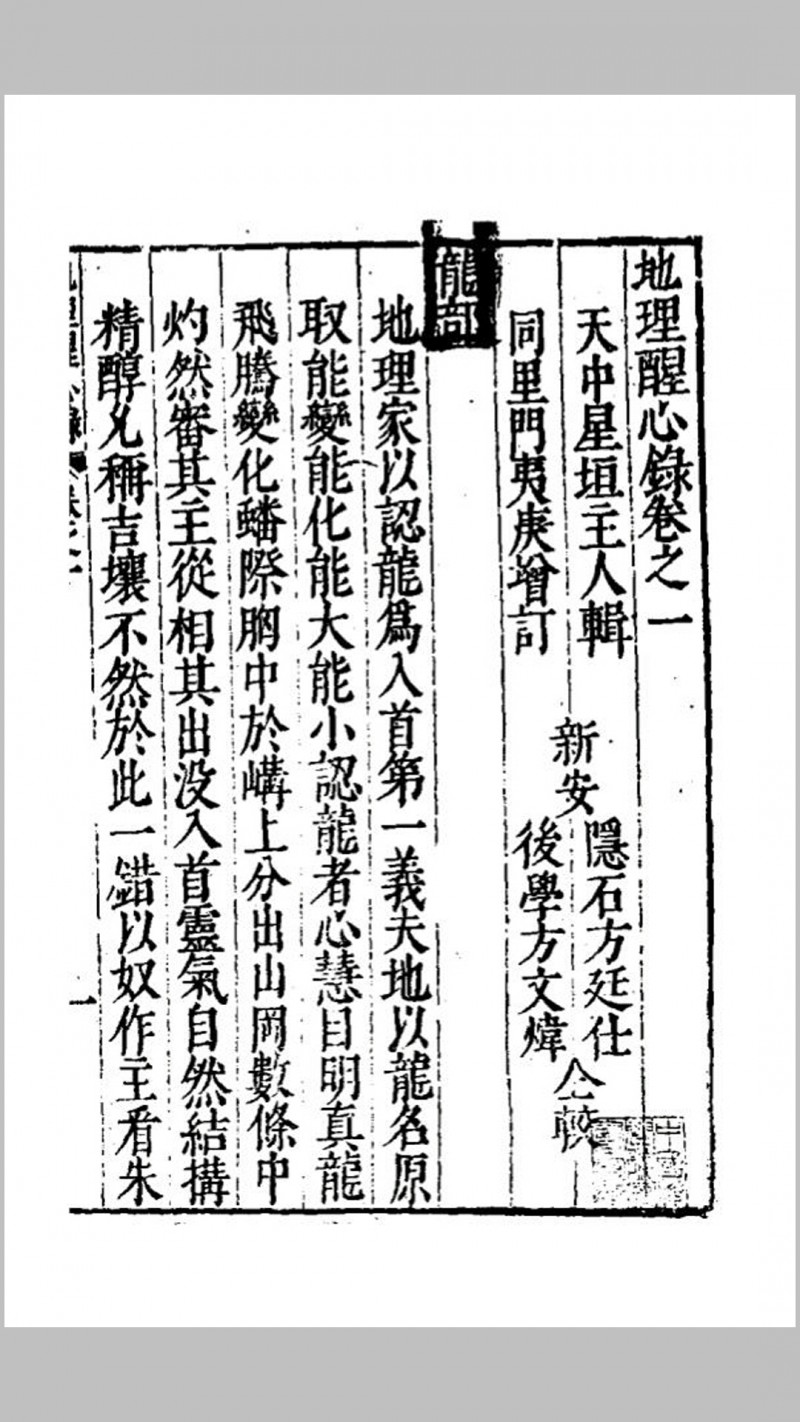 地理醒心錄卷之一
天中星垣主人輯
同里門夷庚增訂
新安
隱石方廷仕
後學方文煒
仝較
龍部
地理家以認龍爲入首第一義夫地以龍名原
取能變能化能大能小認龍者心慧目明真龍
飛騰變化蟠際胸中於嶹上分出山岡數條中
灼然審其主從相其出没入首靈氣自然結搆
精醇允稱吉壤不然於此一錯以奴作主看朱
地理醒心錄 卷之一
一